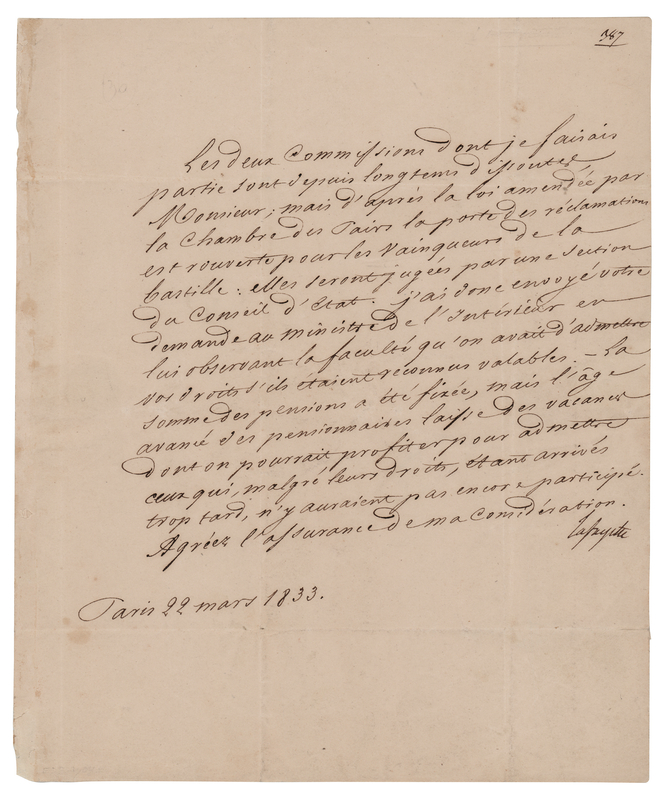 387
Les deux Commissions dont je faisais
partie sont depuis longtems dissoutes,
Monsieur; mais d'après la loi amendée par
la Chambre des Pairs la porte des réclamations
est rouverte pour les Vainqueurs de la
bastille: elles seront jugées par une section
du Conseil d'Etat. J'ai donc envoyé votre
demande au ministre de l'Intérieur en
lui observant la faculté qu'on avait d'admettre
vos droits s'ils étaient reconnus valables. – La
somme des pensions a été fixée, mais l'âge
avancé des pensionnaires laisse des vacances
dont on pourrait profiter pour admettre
ceux qui, malgré leurs droits, étant arrivés
trop tard, n'y auraient pas encore participé.
Agréez l'assurance de ma considération.
Lafayette
Paris 22 mars 1833.